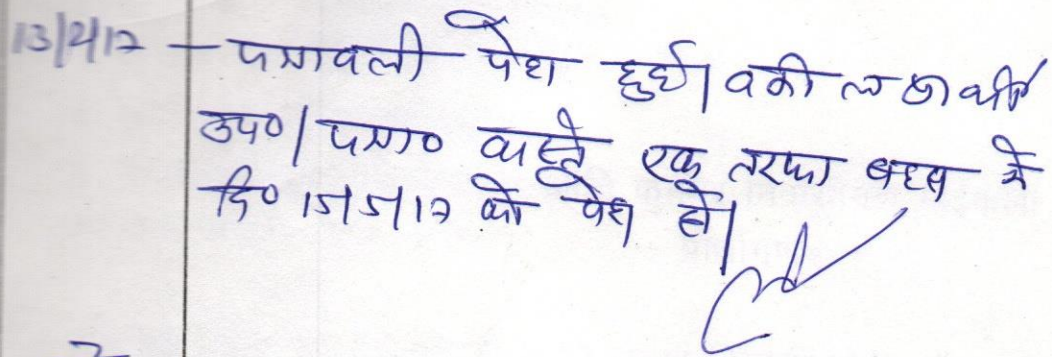 13/2/17 – पत्रावली पेश हुई। वकील प्रार्थी
उप०/ पत्रा० वास्ते एक तरफा बहस में
दि० 15/5/17 को पेश हो।